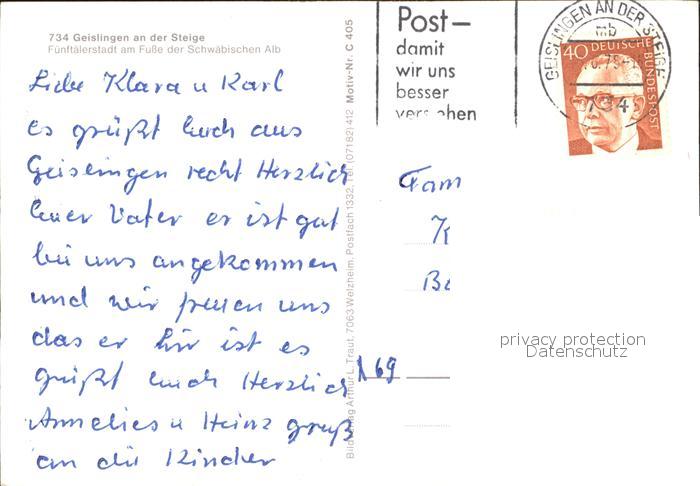 734 Geislingen an der Steige
Fünftälerstadt am Fuße der Schwäbischen Alb
Liebe Klara u Karl
es grüßt Euch aus
Geislingen recht Herzlich
Euer Vater er ist gut
bei uns angekommen
und wir freuen uns
das er hir ist es
grüßt Euch Herzlich
Annelies u Heinz gruß
an die Kinder
Bildverlag Arthur L. Traut, 7063 Welzheim, Postfach 1332, Tel. (07182) 412 Motiv-Nr. C 405
Post–
damit
wir uns
besser
verstehen
GEISLINGEN AN DER STEIGE
mb
734
40 DEUTSCHE BUNDESPOST
Fam
K
Be
169
privacy protection
Datenschutz